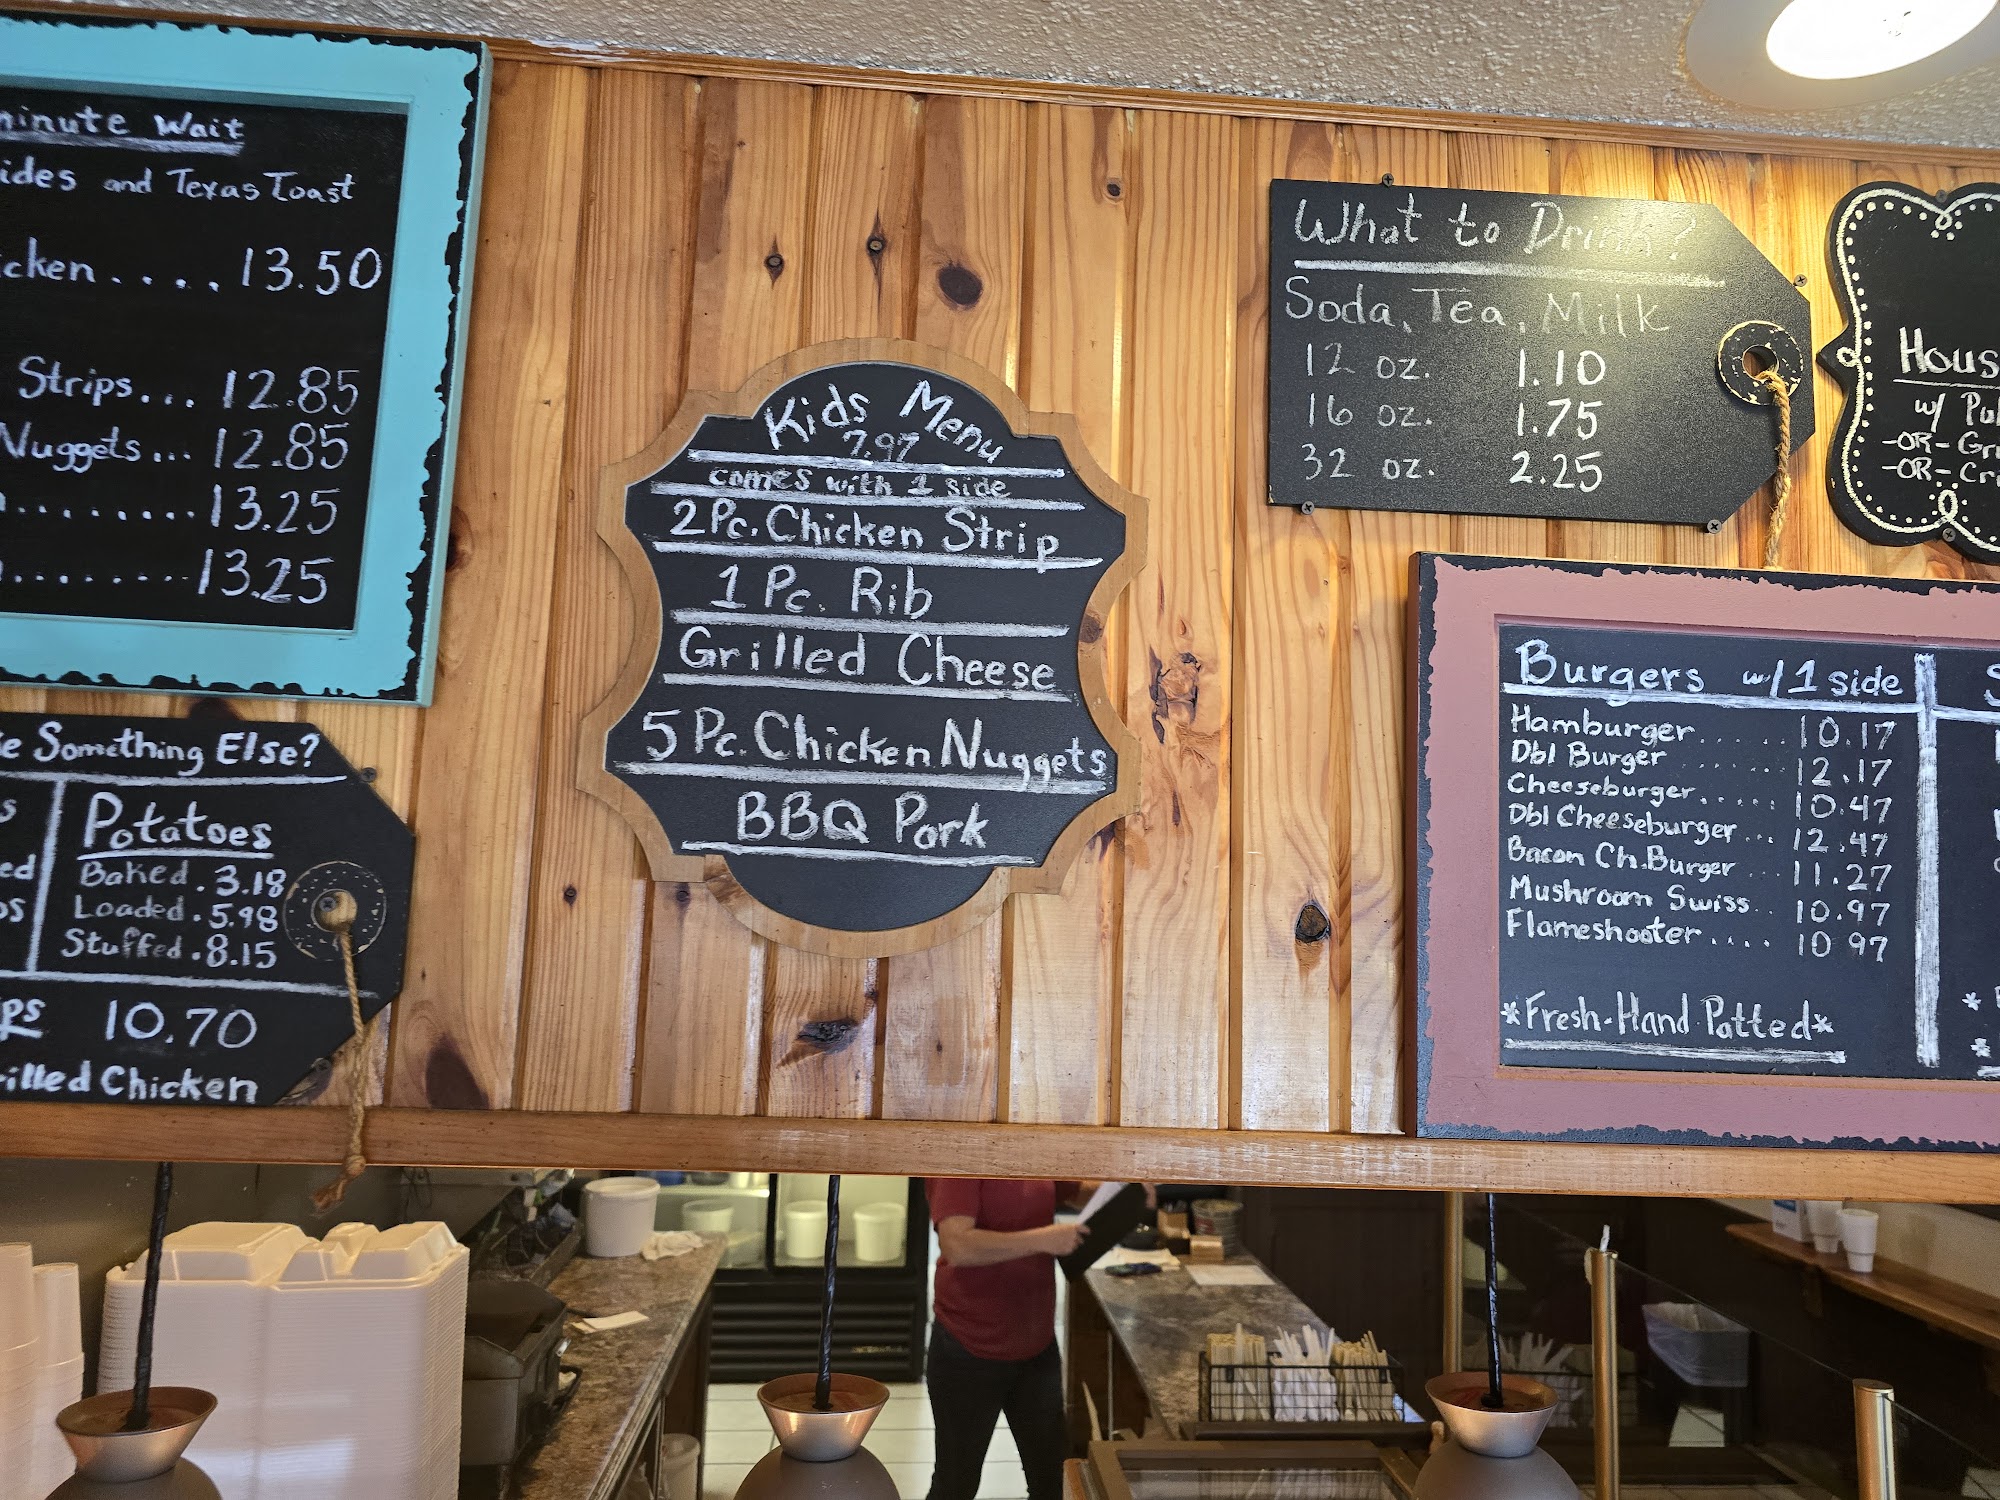 minute Wait
and Texas Toast
13.50
Strips... 12.85
Nuggets... 12.85
13.25
13.25
Something Else?
Potatoes
Baked . 3.18
Loaded . 5.98
Stuffed . 8.15
10.70
Chicken
Kids Menu
7.97
comes with 1 side
2 Pc. Chicken Strip
1 Pc. Rib
Grilled Cheese
5 Pc. Chicken Nuggets
BBQ Pork
What to Drink?
Soda, Tea, Milk
12 oz. 1.10
16 oz. 1.75
32 oz. 2.25
w/
-OR-
-OR-
Burgers w/ 1 side
Hamburger...... 10.17
Dbl Burger ....... 12.17
Cheeseburger...... 10.47
Dbl Cheeseburger... 12.47
Bacon Ch. Burger ... 11.27
Mushroom Swiss.. 10.97
Flameshooter.... 10 97
*Fresh-Hand Patted*